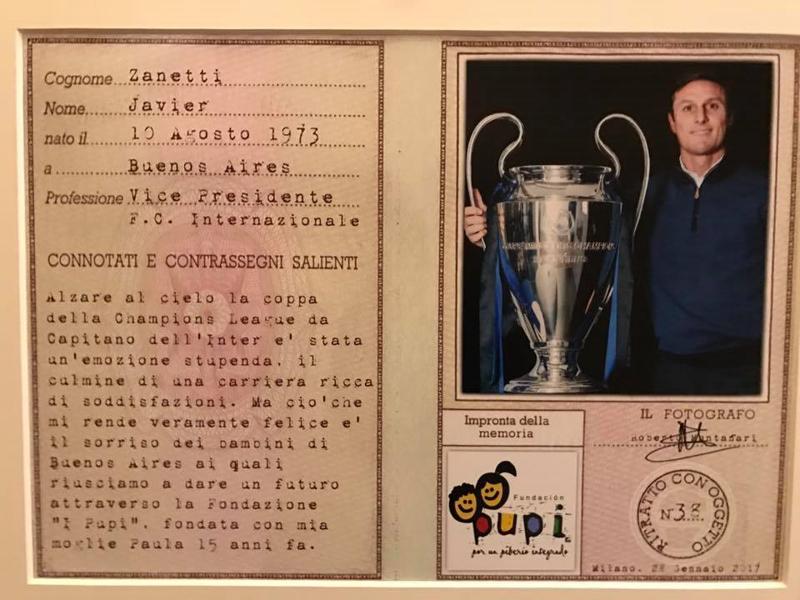 Cognome Zanetti
Nome Javier
nato il 10 Agosto 1973
a Buenos Aires
Professione Vice Presidente
F.C. Internazionale
CONNOTATI E CONTRASSEGNI SALIENTI
Alzare al cielo la coppa
della Champions League da
Capitano dell'Inter e' stata
un'emozione stupenda, il
culmine di una carriera ricca
di soddisfazioni. Ma cio'che
mi rende veramente felice e'
il sorriso dei bambini di
Buenos Aires ai quali
riusciamo a dare un futuro
attraverso la Fondazione
"I Pupi", fondata con mia
moglie Paula 15 anni fa.
Impronta della
memoria
Fundación
pupi
por un piberio integrado
IL FOTOGRAFO
Roberto
RITRATTO CON OGGETTO
N 38
Milano, 28 Gennaio 2017